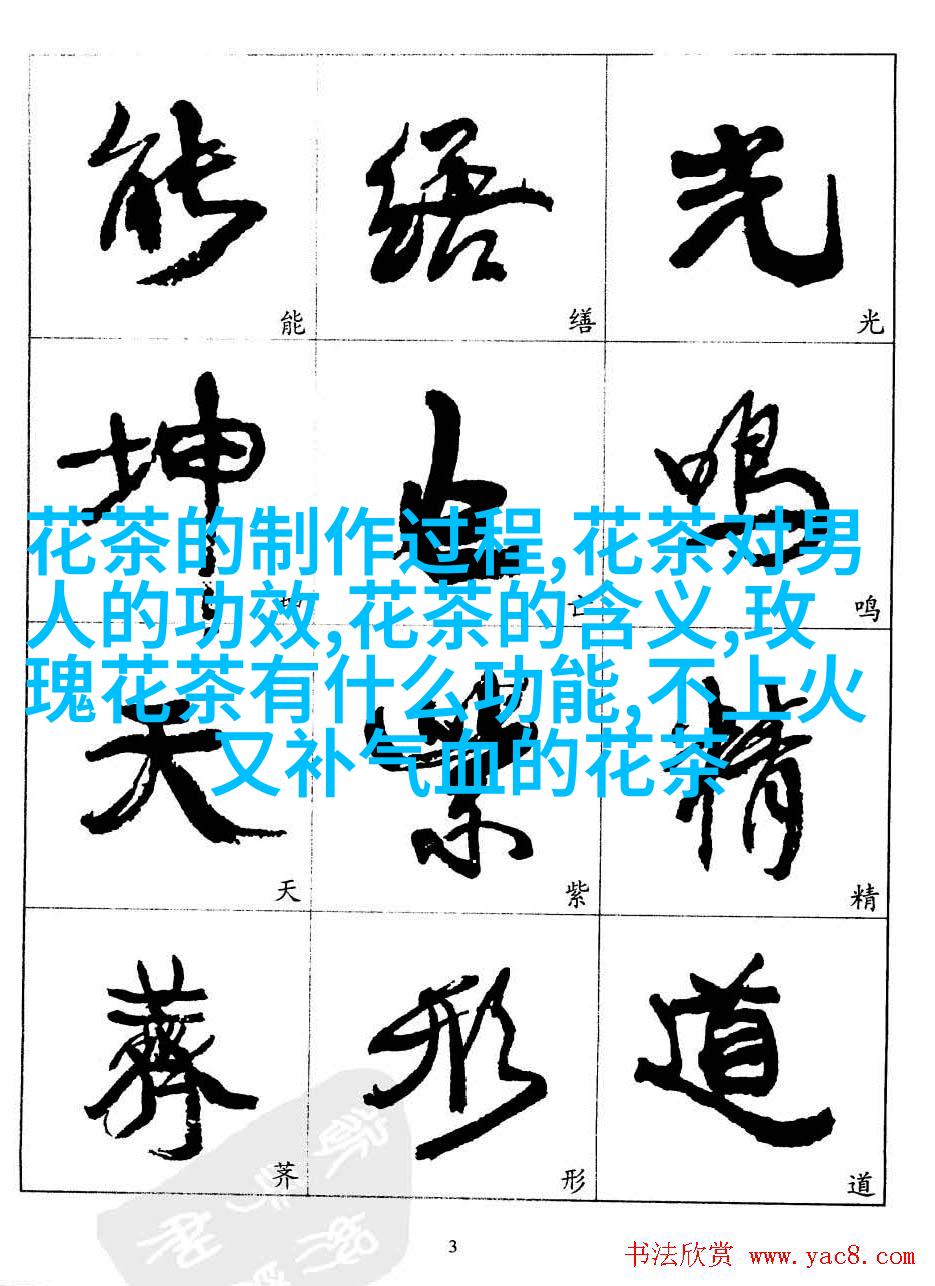 能 缮 光
能 缮 光
坤 亡 鸣
坤 亡 鸣
花茶的制作过程,花茶对男
人的功效,花茶的含义,玫
瑰花茶有什么功能,不上火
又补气血的花茶
天 紫 精
天 紫 精
荠 形 道
荠 形 道
3
书法欣赏 www.yac8.com